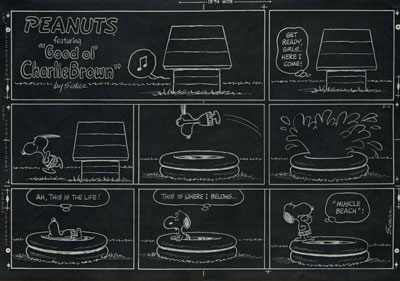 PEANUTS
featuring
"Good ol'
CharlieBrown"
by Schulz
GET
READY,
GIRLS..
HERE I
COME!
AH, THIS IS THE LIFE!
THIS IS WHERE I BELONG...
"MUSCLE
BEACH"!
SCHULZ